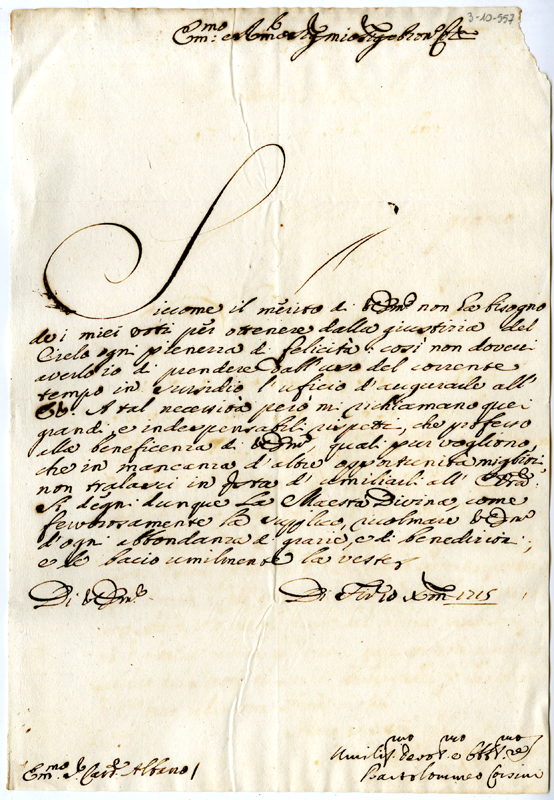 3-10-557
Em.mo e R.mo Sig.r mio Sig.r e Pron Col.mo
Siccome il merito di V. Em.za non ha bisogno
de i miei voti per ottenere dalla giustizia del
Cielo ogni pienezza di felicità: così non dovevi
di prendere dall'uso del corrente
tempo in sussidio l'uficio d'augurarle all'
A tal necessità però mi richiamano quei
grandi, e indespensabili rispetti, che professo
alla beneficenza di V. Em.za, quali pur vogliono,
che in mancanza d'altre opportunità migliori
non tralasci in d'umiliarli all'
Si degni dunque La Maestà Divina, come
fervorosamente la supplico, ricolmare V. Em.za
d'ogni abbondanza di grazie, e di benedizioni;
e le bacio umilmente la veste
Di V. Em.za
Di Xmbre 1715
Em.mo S. Card. Albano
Umiliss.mo devot.mo e obblig.mo
Bartolommeo Corsini